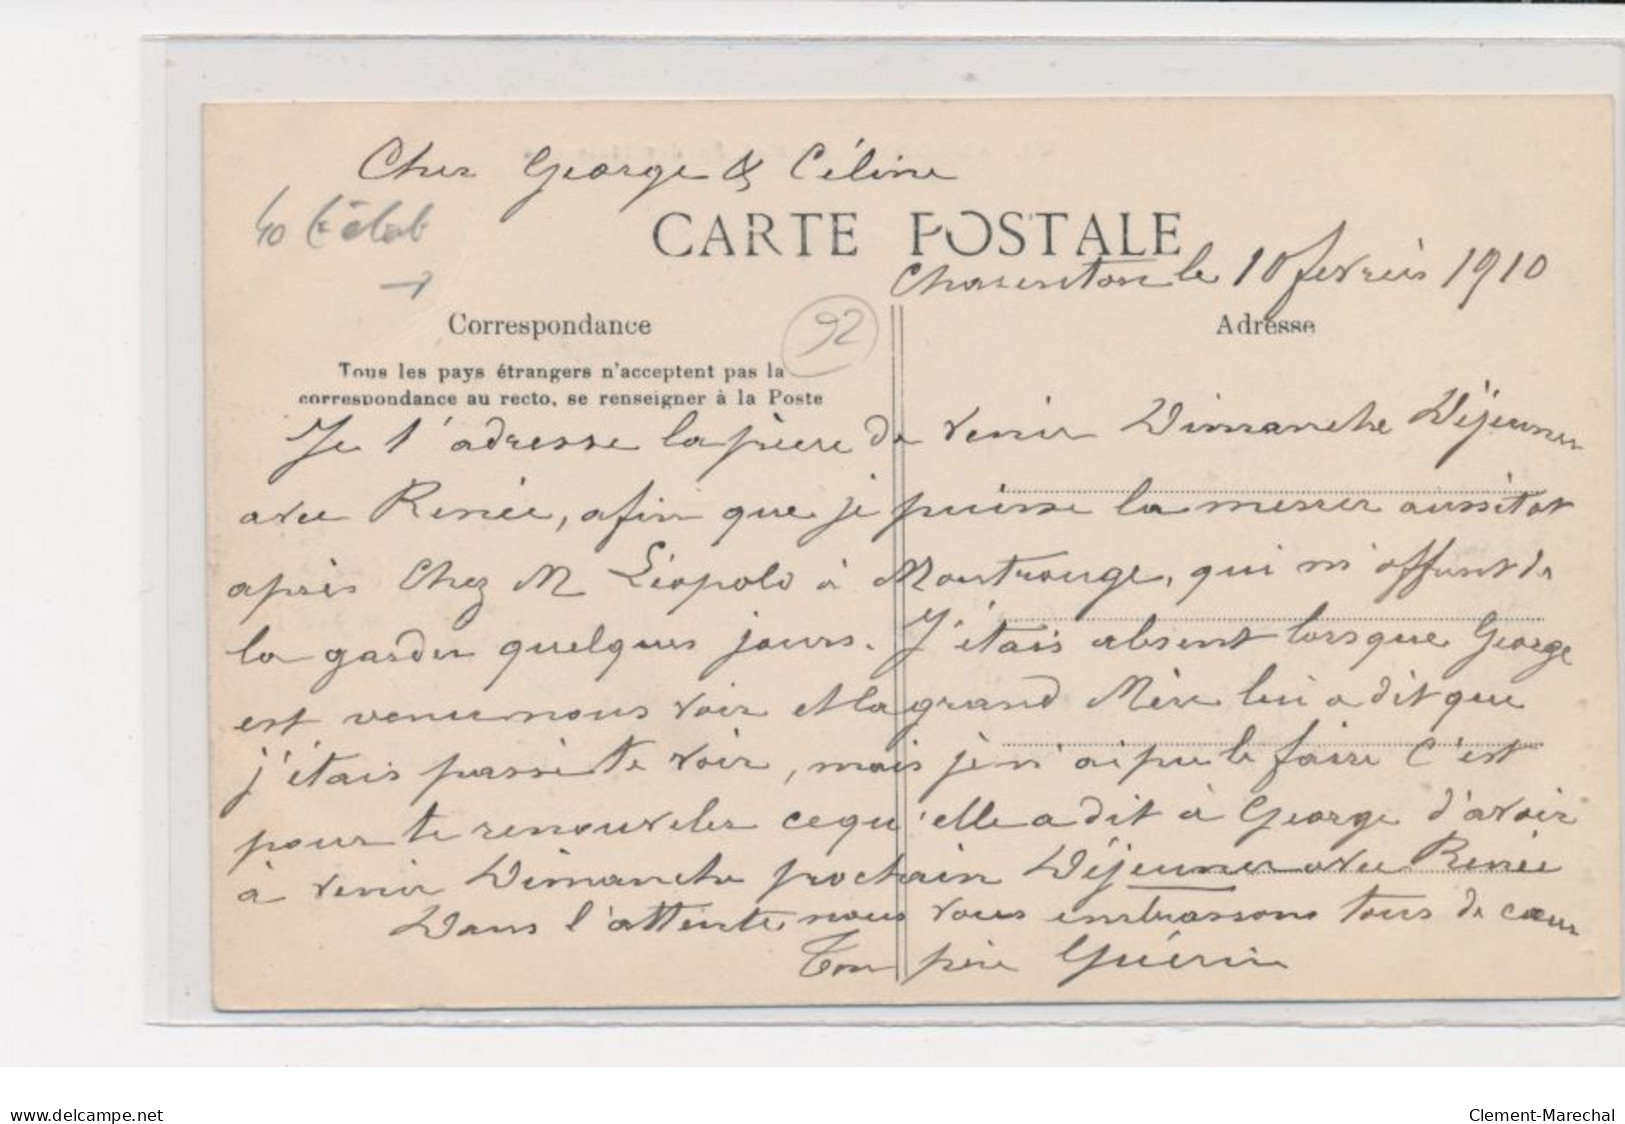 Cher George & Céline
CARTE POSTALE
Charenton le 10 fevrier 1910
Correspondance
92
Adresse
Tous les pays étrangers n'acceptent pas la
correspondance au recto, se renseigner à la Poste
Je t'adresse la pière de venir Dimanche Déjeuner
avec Renée, afin que je puisse la mener aussitot
après Chez M Léopold à Montrouge, qui m'offrent de
la garder quelques jours. J'étais absent lorsque George
est venu nous voir et la grand Mère lui a dit que
j'étais passé te voir, mais je n'ai pu le faire C'est
pour te renouveler ce qu'elle a dit à George d'avoir
à venir Dimanche prochain Déjeuner avec Renée
Dans l'attente, nous vous embrassons tous de cœur
Ton père Guérin
www.delcampe.net
Clement-Marechal